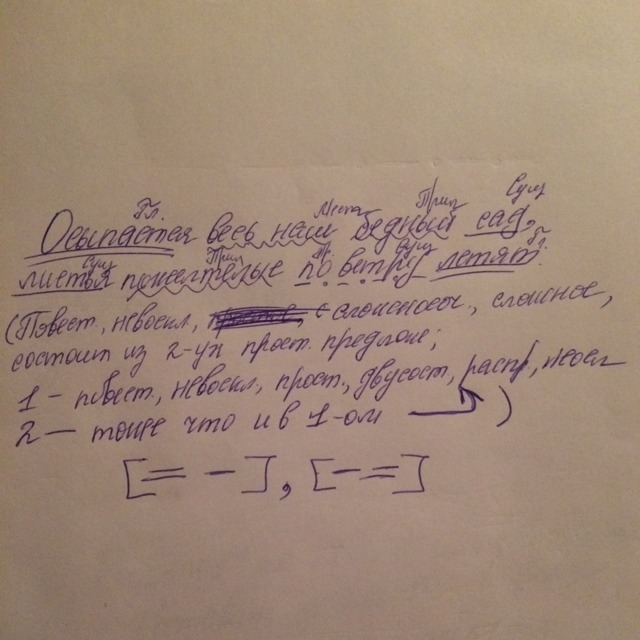 Гл. Мест Прил Сущ
Осыпается весь наш бедный сад,
Сущ Прил Пр. Сущ Гл.
листья пожелтелые по ветру летят.
(Повест., невоскл, сложное,
состоит из 2-ух прост. предлож;
1 – повест., невоскл, прост., двусост, распр, неосл
2 — тоже что и в 1-ом )
[= –], [– =]